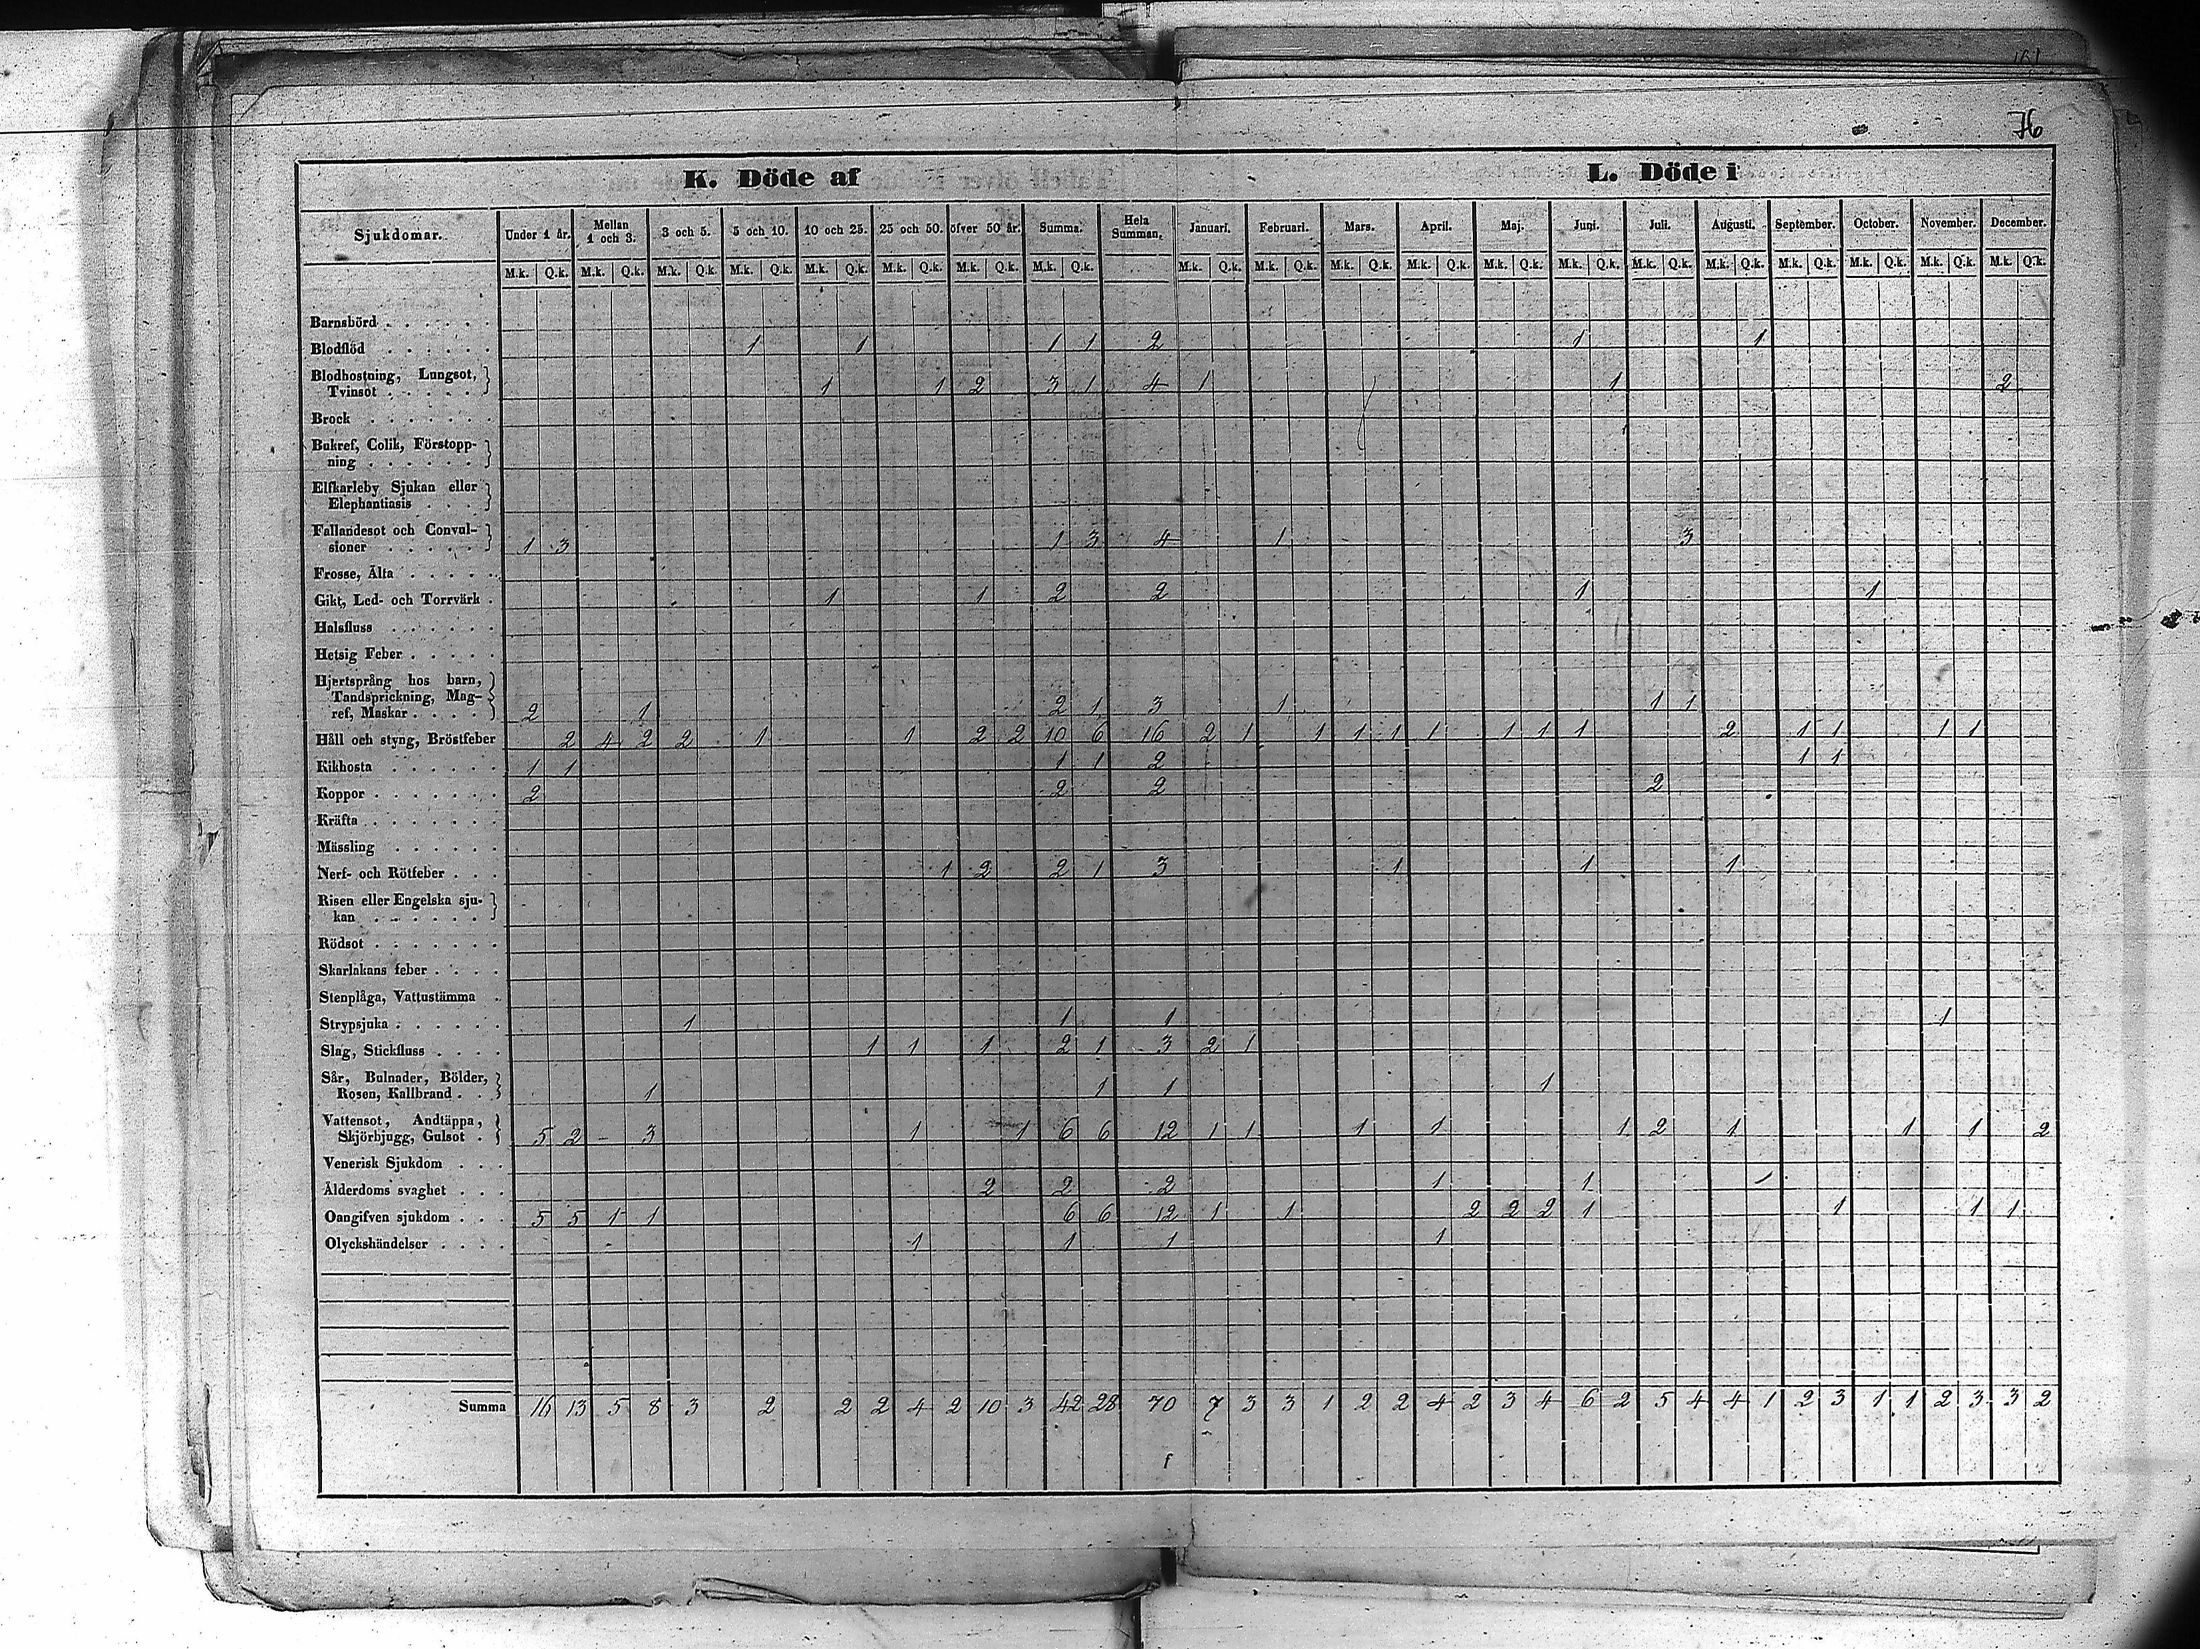 76
K. Döde af L. Döde i
Sjukdomar. Under 1 år. Mellan 1 och 3. 3 och 5. 5 och 10. 10 och 25. 25 och 50. öfver 50 år. Summa. Hela Summan. Januari. Februari. Mars. April. Maj. Juni. Juli. Augusti. September. October. November. December.
M.k. Q.k. M.k. Q.k. M.k. Q.k. M.k. Q.k. M.k. Q.k. M.k. Q.k. M.k. Q.k. M.k. Q.k. M.k. Q.k. M.k. Q.k. M.k. Q.k. M.k. Q.k. M.k. Q.k. M.k. Q.k. M.k. Q.k. M.k. Q.k. M.k. Q.k. M.k. Q.k. M.k. Q.k. M.k. Q.k.
Barnsbörd
Blodflöd 1 1 1 1 2 1 1
Blodhostning, Lungsot,
Tvinsot 1 1 2 3 1 4 1 1 2
Brock
Bukref, Colik, Förstopp-
ning
Elfkarleby Sjukan eller
Elephantiasis
Fallandesot och Convul-
sioner 1 3 1 3 4 1 3
Frosse, Älta
Gikt, Led- och Torrvärk 1 1 2 2 1 1
Halsfluss
Hetsig Feber
Hjertsprång hos barn,
Tandsprickning, Mag-
ref, Maskar 2 1 2 1 3 1 1 1
Håll och styng, Bröstfeber 2 4 2 2 1 1 2 2 10 6 16 2 1 1 1 1 1 1 1 1 2 1 1 1 1
Kikhosta 1 1 1 1 2 1 1
Koppor 2 2 2 2
Kräfta
Mässling
Nerf- och Rötfeber 1 2 2 1 3 1 1 1
Risen eller Engelska sju-
kan
Rödsot
Skarlakans feber
Stenplåga, Vattustämma
Strypsjuka 1 1 1 1
Slag, Stickfluss 1 1 1 2 1 3 2 1
Sår, Bulnader, Bölder,
Rosen, Kallbrand 1 1 1 1
Vattensot, Andtäppa,
Skjörbjugg, Gulsot 5 2 3 1 1 6 6 12 1 1 1 1 1 2 1 1 1 2
Venerisk Sjukdom
Ålderdoms svaghet 2 2 2 1 1 1
Oangifven sjukdom 5 5 1 1 6 6 12 1 1 2 2 2 1 1 1 1
Olyckshändelser 1 1 1 1
Summa 16 13 5 8 3 2 2 2 4 2 10 3 42 28 70 7 3 3 1 2 2 4 2 3 4 6 2 5 4 4 1 2 3 1 1 2 3 3 2